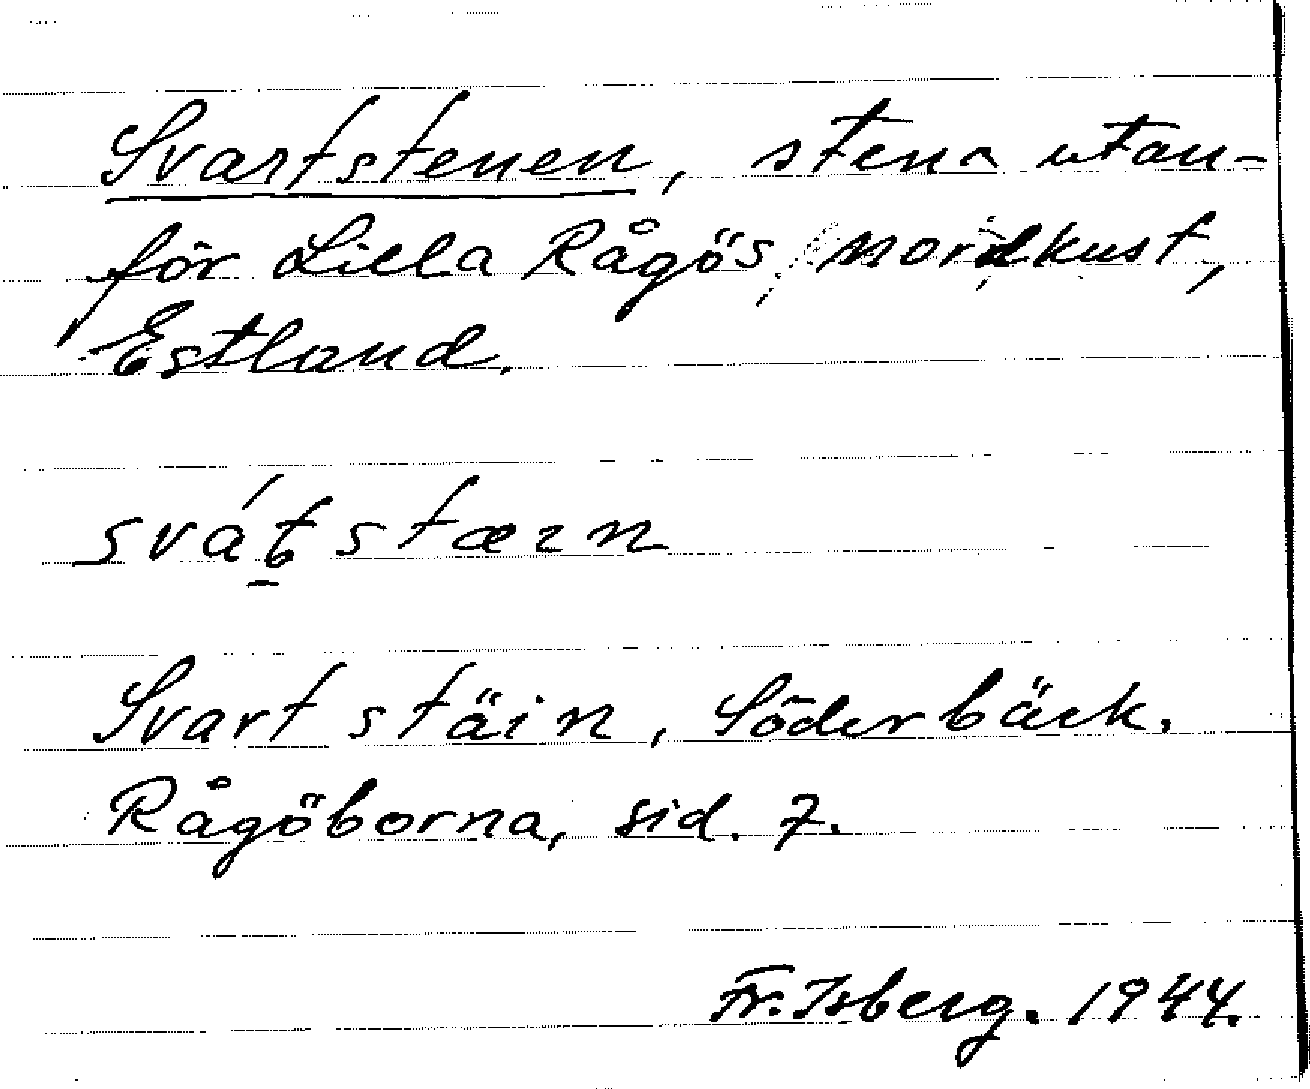 Svartstenen, stena utan-
för Lilla Rågös nordkust,
Estland.
svát̠stæın
Svart stäin, Söderbäck.
Rågöborna, sid. 7.
Fr. Isberg. 1944.